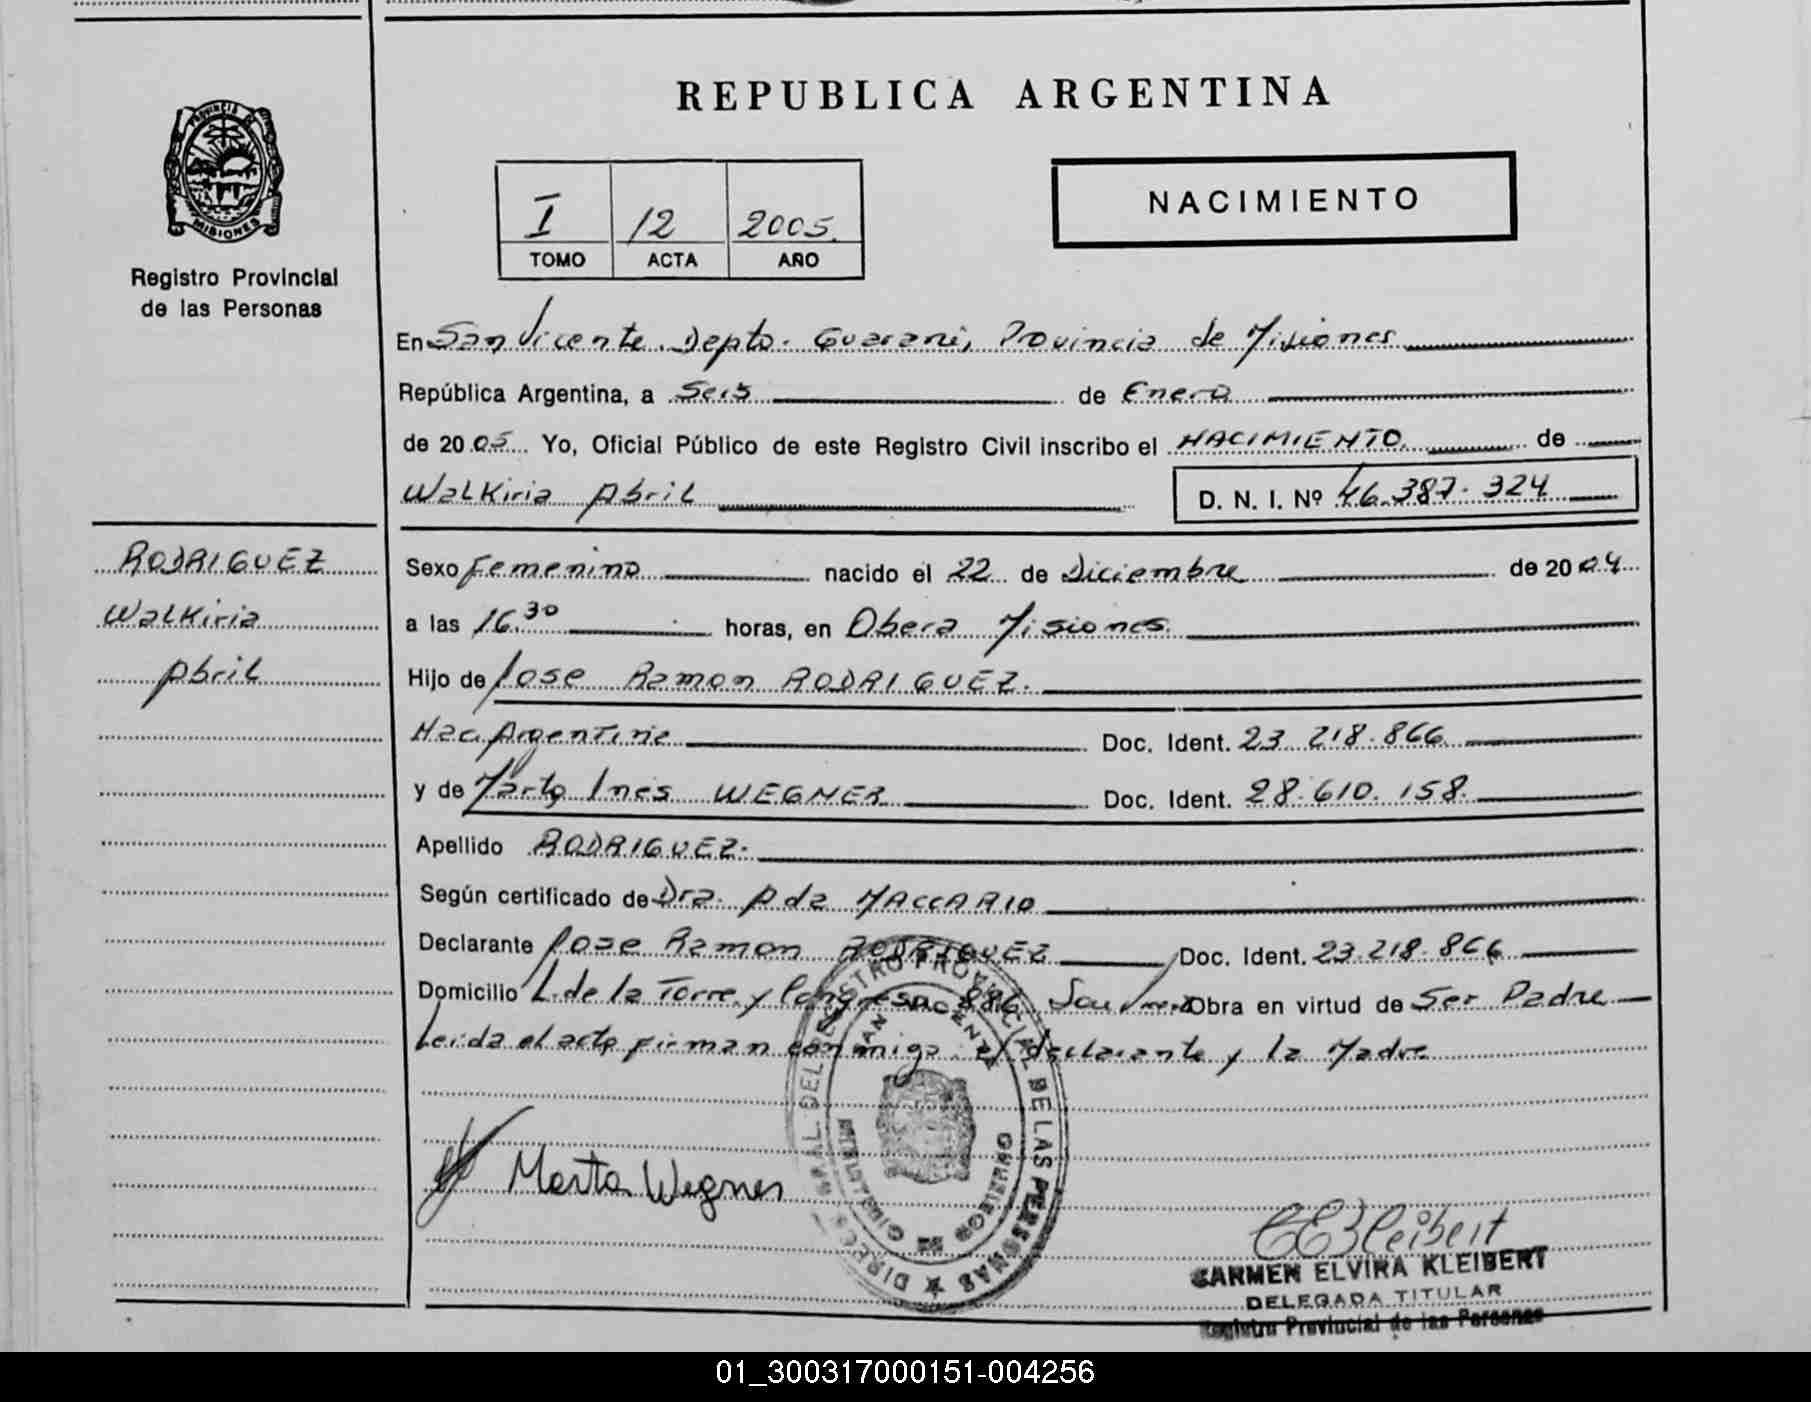 REPUBLICA ARGENTINA
PROVINCIA DE
MISIONES
Registro Provincial
de las Personas
I 12 2005
TOMO ACTA AÑO
NACIMIENTO
En San Vicente. Depto. Guarani, Provincia de Misiones
República Argentina, a Seis de Enero
de 2005 Yo, Oficial Público de este Registro Civil inscribo el NACIMIENTO de
Walkiria Abril D. N. I. Nº 46.387.324
RODRIGUEZ
Walkiria
Abril
Sexo Femenino nacido el 22 de Diciembre de 2004
a las 16.30 horas, en Obera Misiones.
Hijo de Jose Ramon RODRIGUEZ.
Nac. Argentina Doc. Ident. 23.218.866
y de Marta Ines WEGNER Doc. Ident. 28.610.158
Apellido RODRIGUEZ.
Según certificado de Dra. Ada MACCARIO
Declarante Jose Ramon RODRIGUEZ Doc. Ident. 23.218.866
Domicilio L. de la Torre y Congreso 886, San Obra en virtud de Ser Padre
Leida el acta firman conmigo el declarante y la Madre
DEL REGISTRO PROVINCIAL DE LAS PERSONAS
SAN VICENTE
Marta Wegner
CEKleibert
CARMEN ELVIRA KLEIBERT
DELEGADA TITULAR
Registro Provincial de las Personas
01_300317000151-004256